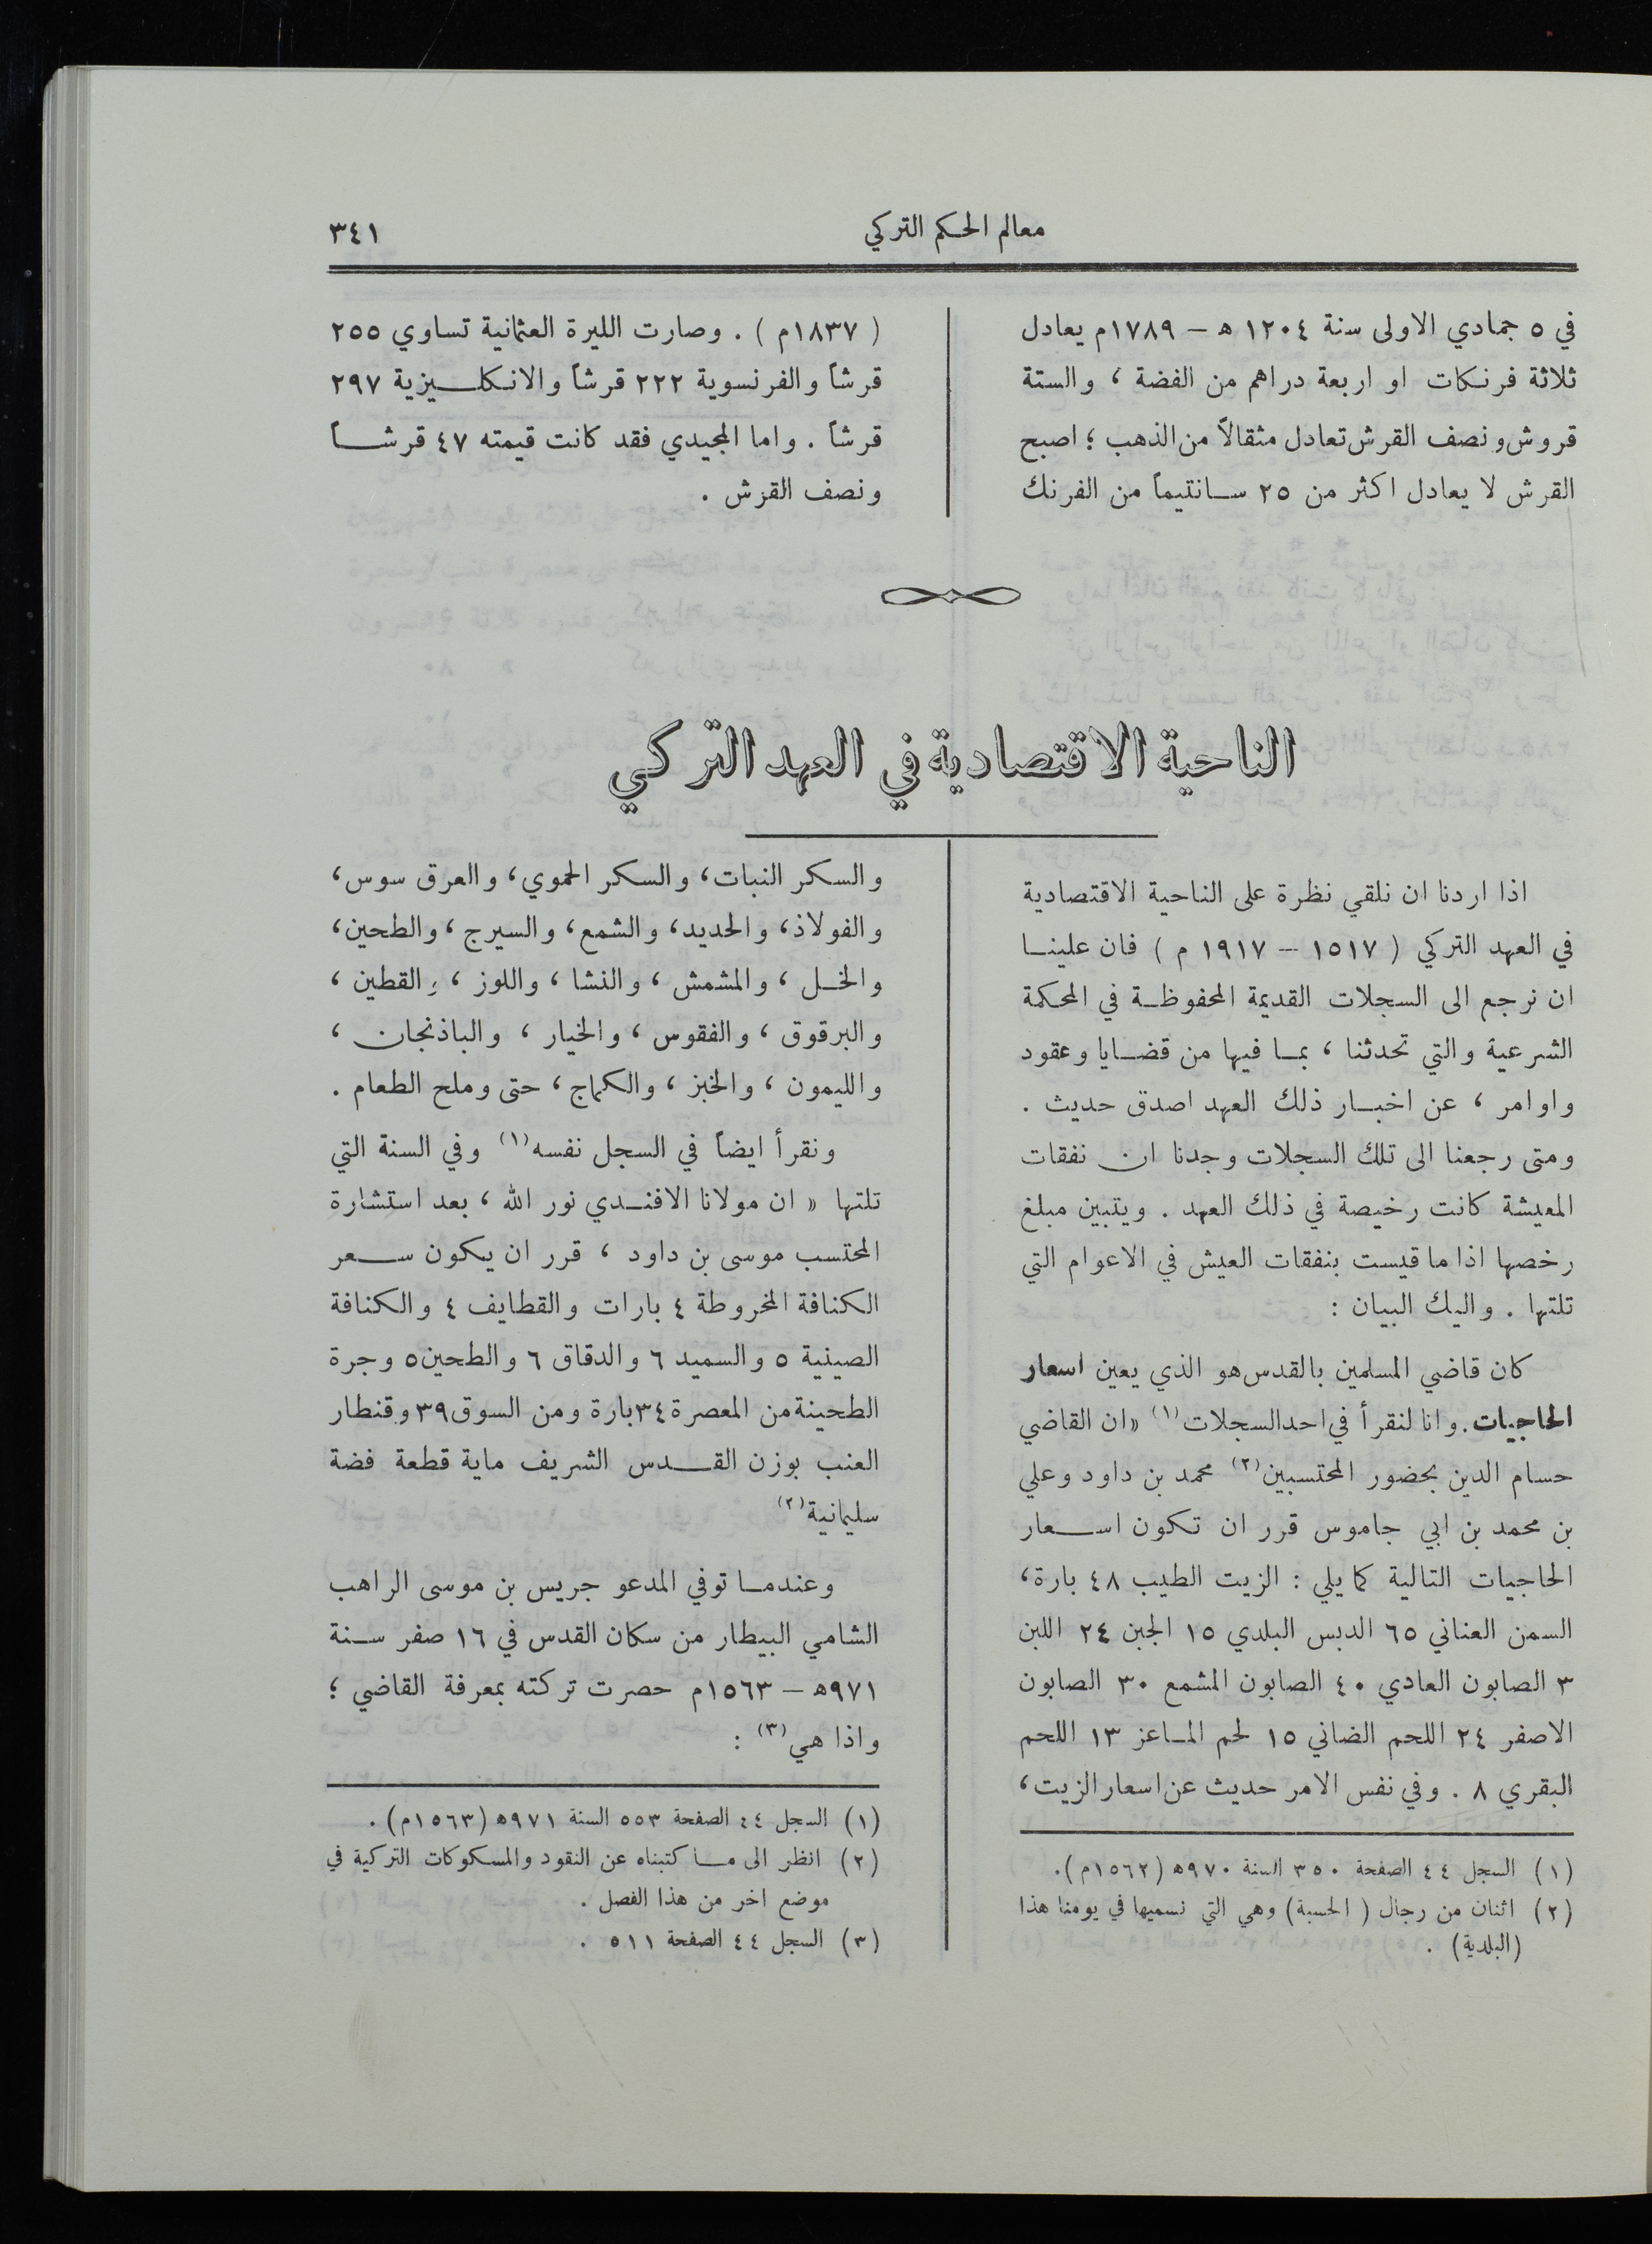 معالم الحكم التركي
٣٤١
في ٥ جمادي الاولى سنة ١٢٠٤ ه – ١٧٨٩م يعادل
ثلاثة فرنكات او اربعة دراهم من الفضة ، والستة
قروش ونصف القرش تعادل مثقالاً من الذهب ؛ اصبح
القرش لا يعادل اكثر من ٢٥ سانتيماً من الفرنك
( ١٨٣٧م ) . وصارت الليرة العثمانية تساوي ٢٥٥
قرشاً والفرنسوية ٢٢٢ قرشاً والانكليزية ٢٩٧
قرشاً . واما المجيدي فقد كانت قيمته ٤٧ قرشاً
ونصف القرش .
الناحية الاقتصادية في العهد التركي
اذا اردنا ان نلقي نظرة على الناحية الاقتصادية
في العهد التركي ( ١٥١٧ – ١٩١٧ م ) فان علينا
ان نرجع الى السجلات القديمة المحفوظة في المحكمة
الشرعية والتي تحدثنا ، بما فيها من قضايا وعقود
واوامر ، عن اخبار ذلك العهد اصدق حديث .
ومتى رجعنا الى تلك السجلات وجدنا ان نفقات
المعيشة كانت رخيصة في ذلك العهد . ويتبين مبلغ
رخصها اذا ما قيست بنفقات العيش في الاعوام التي
تلتها . واليك البيان :
كان قاضي المسلمين بالقدس هو الذي يعين اسعار
الحاجيات. وانا لنقرأ في احد السجلات (١) « ان القاضي
حسام الدين بحضور المحتسبين (٢) محمد بن داود وعلي
بن محمد بن ابي جاموس قرر ان تكون اسعار
الحاجيات التالية كما يلي : الزيت الطيب ٤٨ بارة،
السمن العناني ٦٥ الدبس البلدي ١٥ الجبن ٢٤ اللبن
٣ الصابون العادي ٤٠ الصابون المشمع ٣٠ الصابون
الاصفر ٢٤ اللحم الضاني ١٥ لحم الماعز ١٣ اللحم
البقري ٨ . وفي نفس الامر حديث عن اسعار الزيت،
(١) السجل ٤٤ الصفحة ٣٥٠ السنة ٩٧٠ه (١٥٦٢م).
(٢) اثنان من رجال ( الحسبة) وهي التي نسميها في يومنا هذا
(البلدية) .
والسكر النبات، والسكر الحموي، والعرق سوس،
والفولاذ، والحديد، والشمع، والسيرج ، والطحين،
والخل ، والمشمش ، والنشا ، واللوز ، والقطين ،
والبرقوق ، والفقوس ، والخيار ، والباذنجان ،
والليمون ، والخبز ، والكماج ، حتى وملح الطعام .
ونقرأ ايضاً في السجل نفسه (١) وفي السنة التي
تلتها « ان مولانا الافندي نور الله ، بعد استشارة
المحتسب موسى بن داود ، قرر ان يكون سعر
الكنافة المخروطة ٤ بارات والقطايف ٤ والكنافة
الصينية ٥ والسميد ٦ والدقاق ٦ والطحين ٥ وجرة
الطحينة من المعصرة ٣٤ بارة ومن السوق ٣٩ وقنطار
العنب بوزن القدس الشريف ماية قطعة فضة
سليمانية (٢)
وعندما توفي المدعو جريس بن موسى الراهب
الشامي البيطار من سكان القدس في ١٦ صفر سنة
٩٧١ه – ١٥٦٣م حصرت تركته بمعرفة القاضي ؛
واذا هي (٣) :
(١) السجل ٤٤ الصفحة ٥٥٣ السنة ٩٧١ه (١٥٦٣م) .
(٢) انظر الى ما كتبناه عن النقود والمسكوكات التركية في
موضع اخر من هذا الفصل .
(٣) السجل ٤٤ الصفحة ٥١١ .